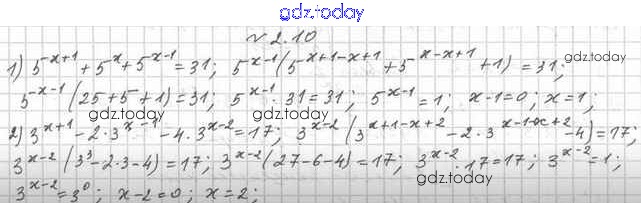 gdz.today
№ 2.10
1) 5^{-x+1} + 5^x + 5^{x-1} = 31; 5^{x-1}(5^{x+1-x+1} + 5^{x-x+1} + 1) = 31;
gdz.today
5^{-x-1}(25+5+1) = 31; 5^{x-1} · 31 = 31; 5^{x-1} = 1; x-1=0; x=1;
gdz.today gdz.today
2) 3^{x+1} - 2·3^{x-1} - 4·3^{x-2} = 17; 3^{x-2}(3^{x+1-x+2} - 2·3^{x-1-x+2} - 4) = 17;
3^{x-2}(3^3 - 2·3 - 4) = 17; 3^{x-2}(27-6-4) = 17; 3^{x-2} · 17 = 17; 3^{x-2} = 1;
gdz.today
3^{x-2} = 3^0; x-2=0; x=2;